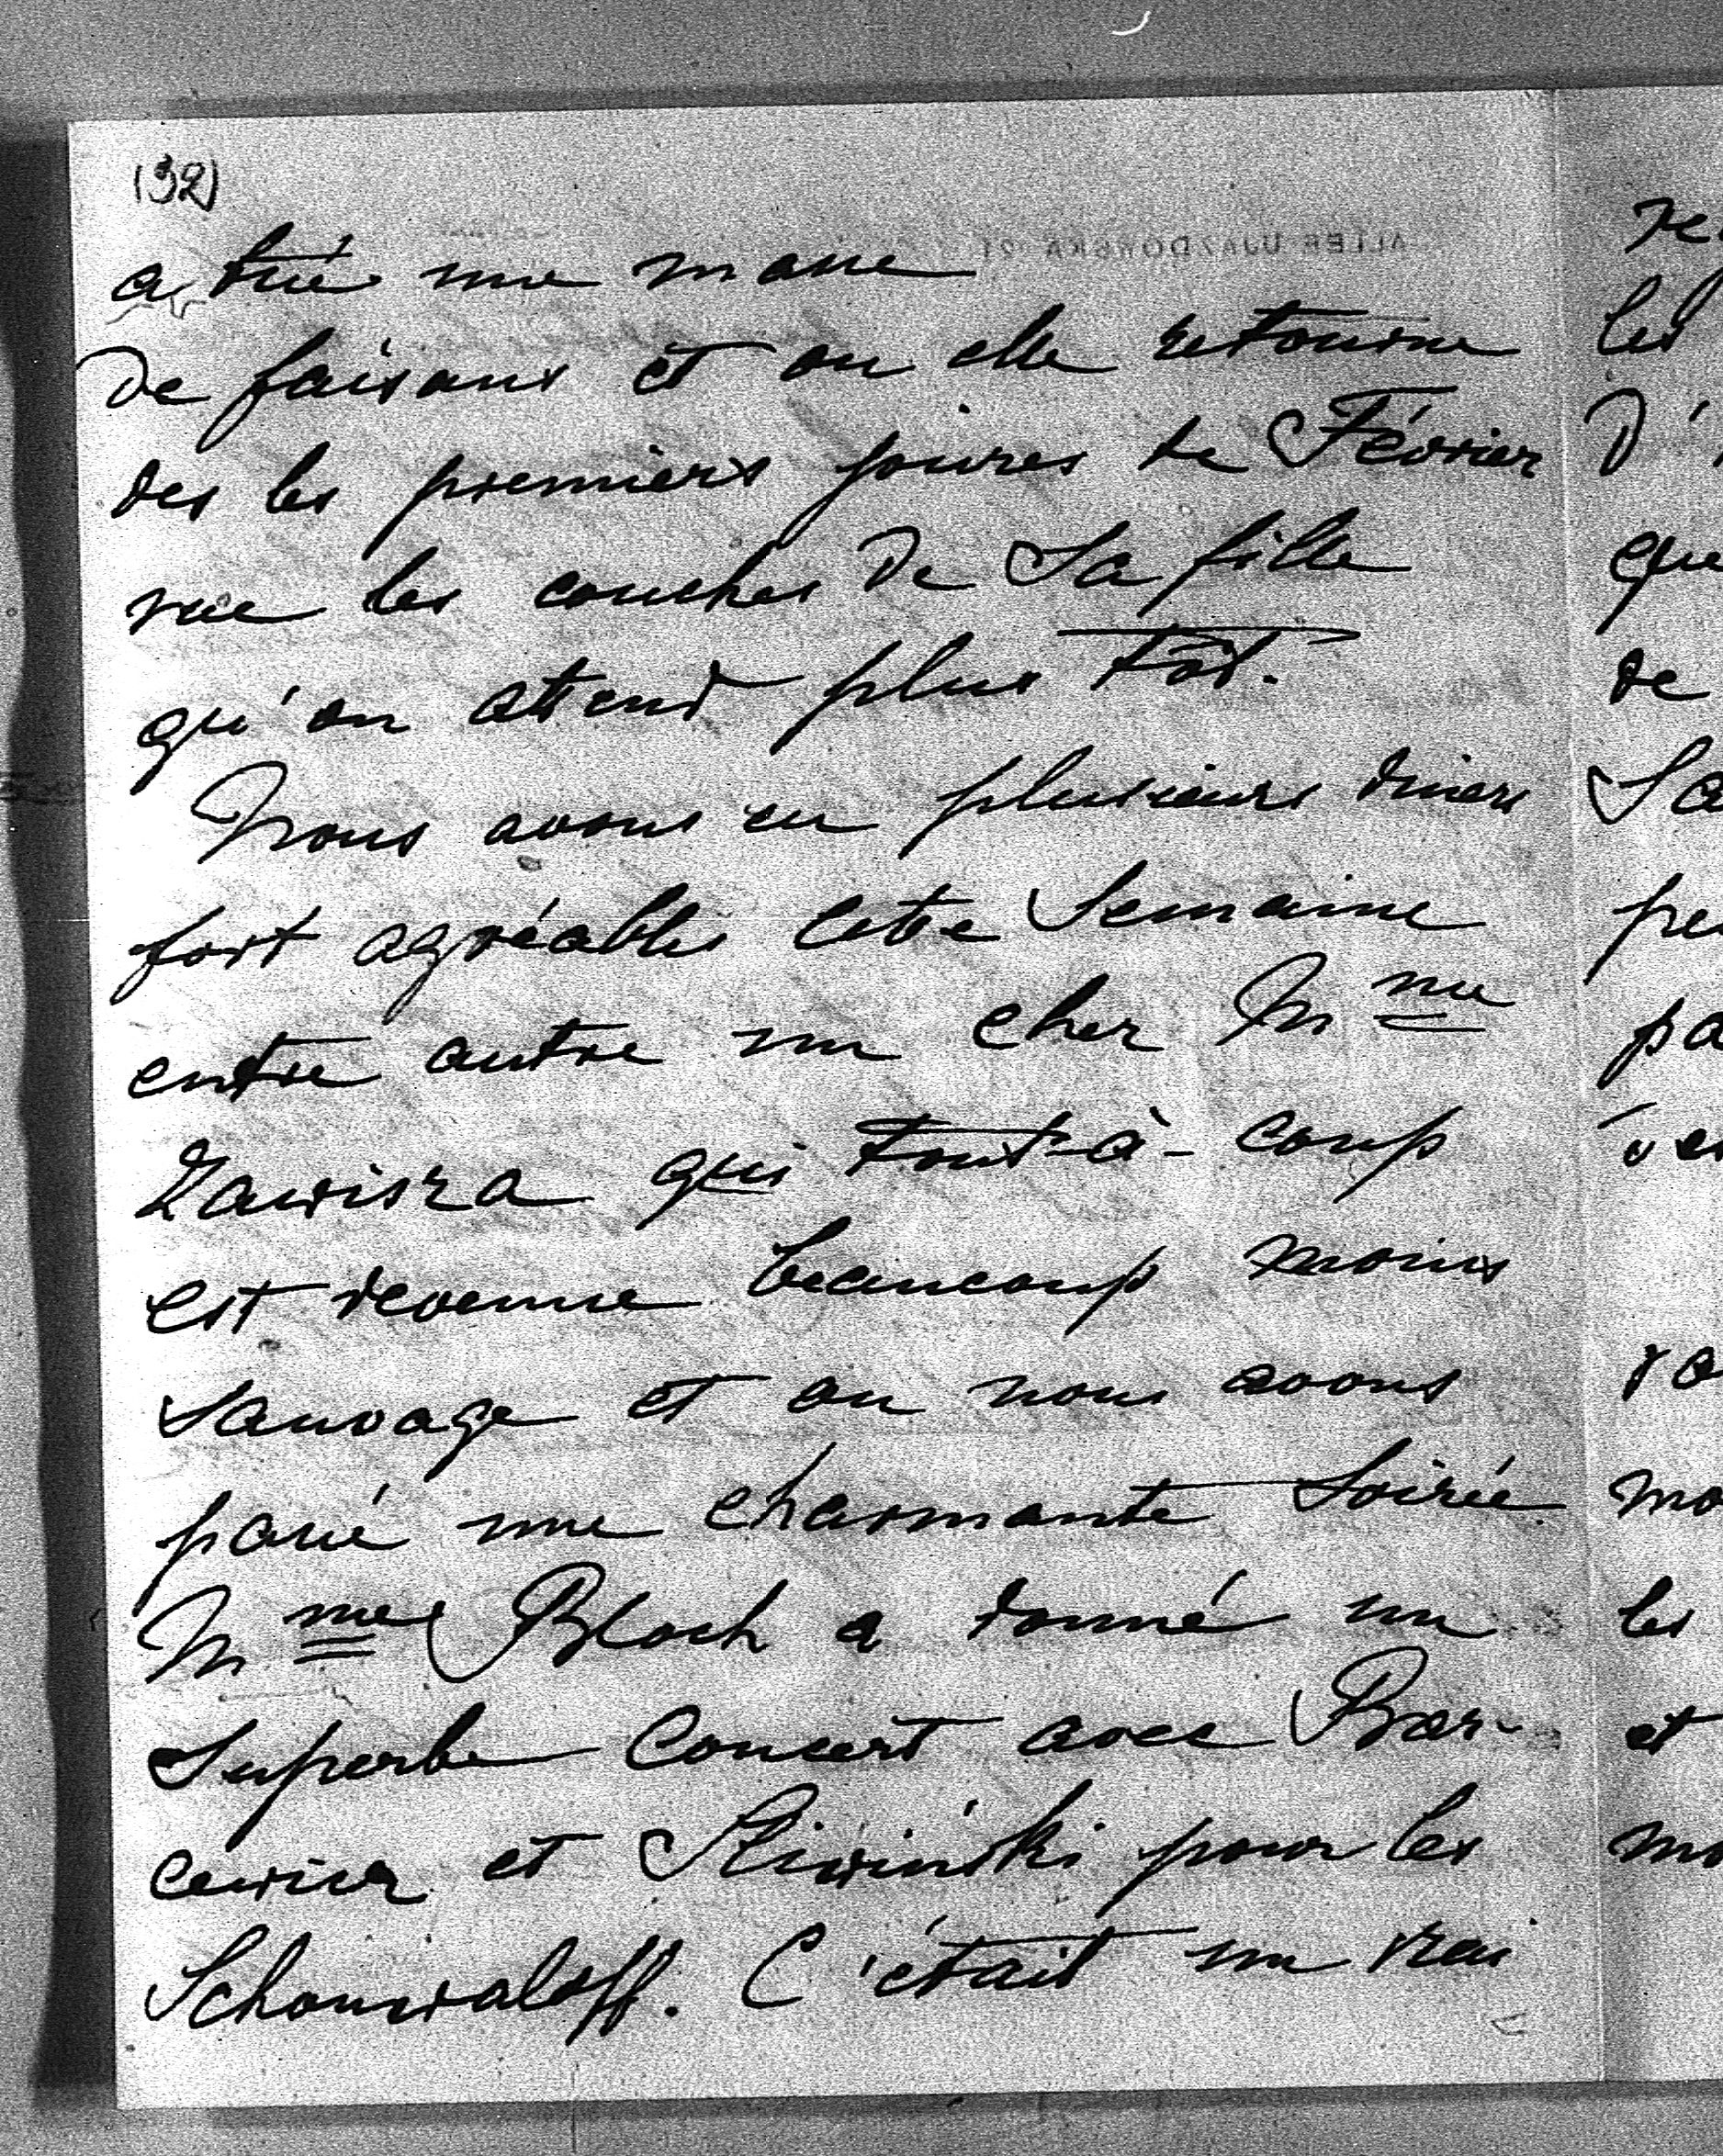 (32)
ALLEE UJAZDOWSKA 21
a tué une masse
de faisans et ou elle retourne
des les premiers joures de Février
vue les couches de sa fille
qu'on attend plus tôt.
Nous avons eu plusieurs diners
fort agréables cette semaine
entre autre un chez Mme
Zawisza qui tout-à-coup
est devenue beaucoup moins
sauvage et ou nous avons
passé une charmante soirée.
Mme Bloch a donné un
superbe Concert avec Bar-
cewicz et Śliwiński pour les
Schouwaloff. C'était un vrai
les
D'
que
de
Sa
pe
pa
mo
les
et
mo